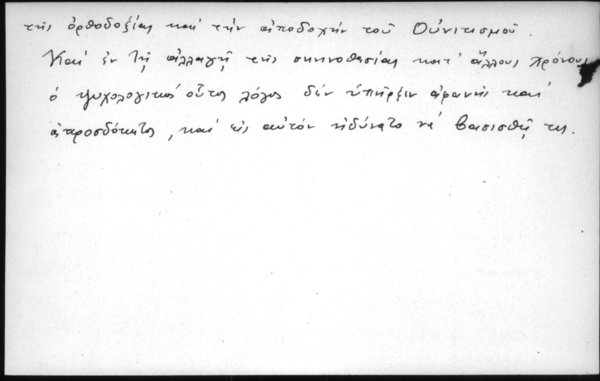 τῆς ὀρθοδοξίας καὶ τὴν ἀποδοχὴν τοῦ Οὐνιτισμοῦ.
Καὶ ἐν τῇ ἀλλαγῇ τῆς σκηνοθεσίας κατ' ἄλλους χρόνους
ὁ ψυχολογικὸς οὗτος λόγος δὲν ὑπῆρξεν ἀφανὴς καὶ
ἀπροσδόκητος, καὶ εἰς αὐτὸν ἠδύνατο νὰ βασισθῇ τις.